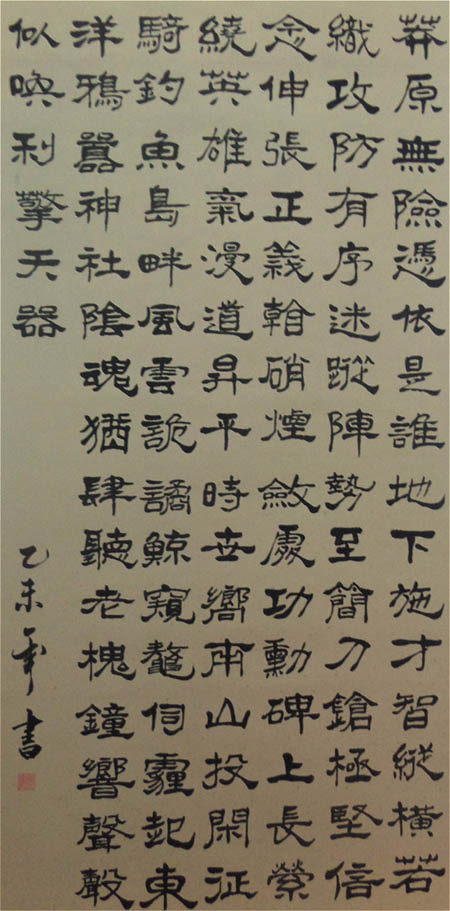 莽原無險憑依是誰地下施才智縱橫若
織攻防有序迷蹤陣勢至簡刀鎗極堅信
念伸張正義看硝煙斂處功勳碑上長縈
繞英雄氣漫道昇平時世嚮南山投閑征
騎釣魚島畔風雲詭譎鯨窺鼇伺霾起東
洋鴉囂神社陰魂猶肆聽老槐鐘響聲聲
似喚利擎天器
乙未年書